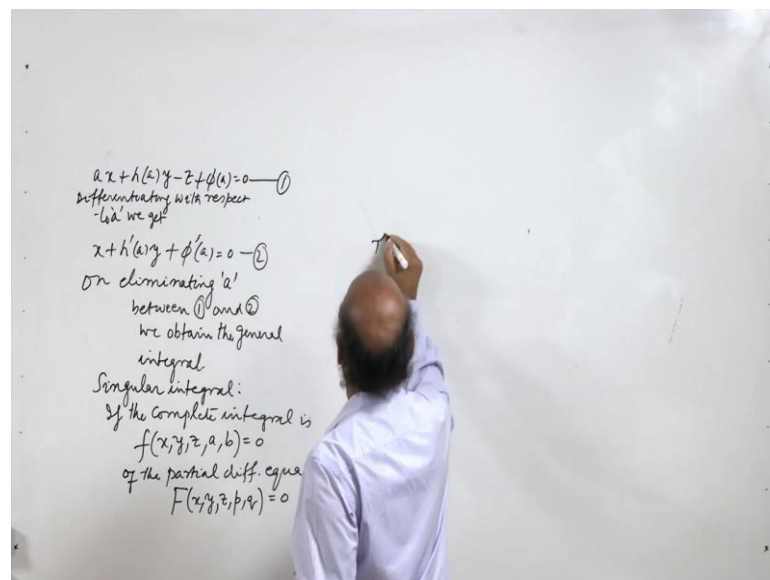 ax + h(a)y - z + φ(a) = 0 — ①
Differentiating with respect
to 'a' we get
x + h'(a)y + φ'(a) = 0 — ②
On eliminating 'a'
between ① and ②
we obtain the general
integral
Singular integral:
If the complete integral is
f(x,y,z,a,b) = 0
of the partial diff. equa
F(x,y,z,p,q) = 0
T